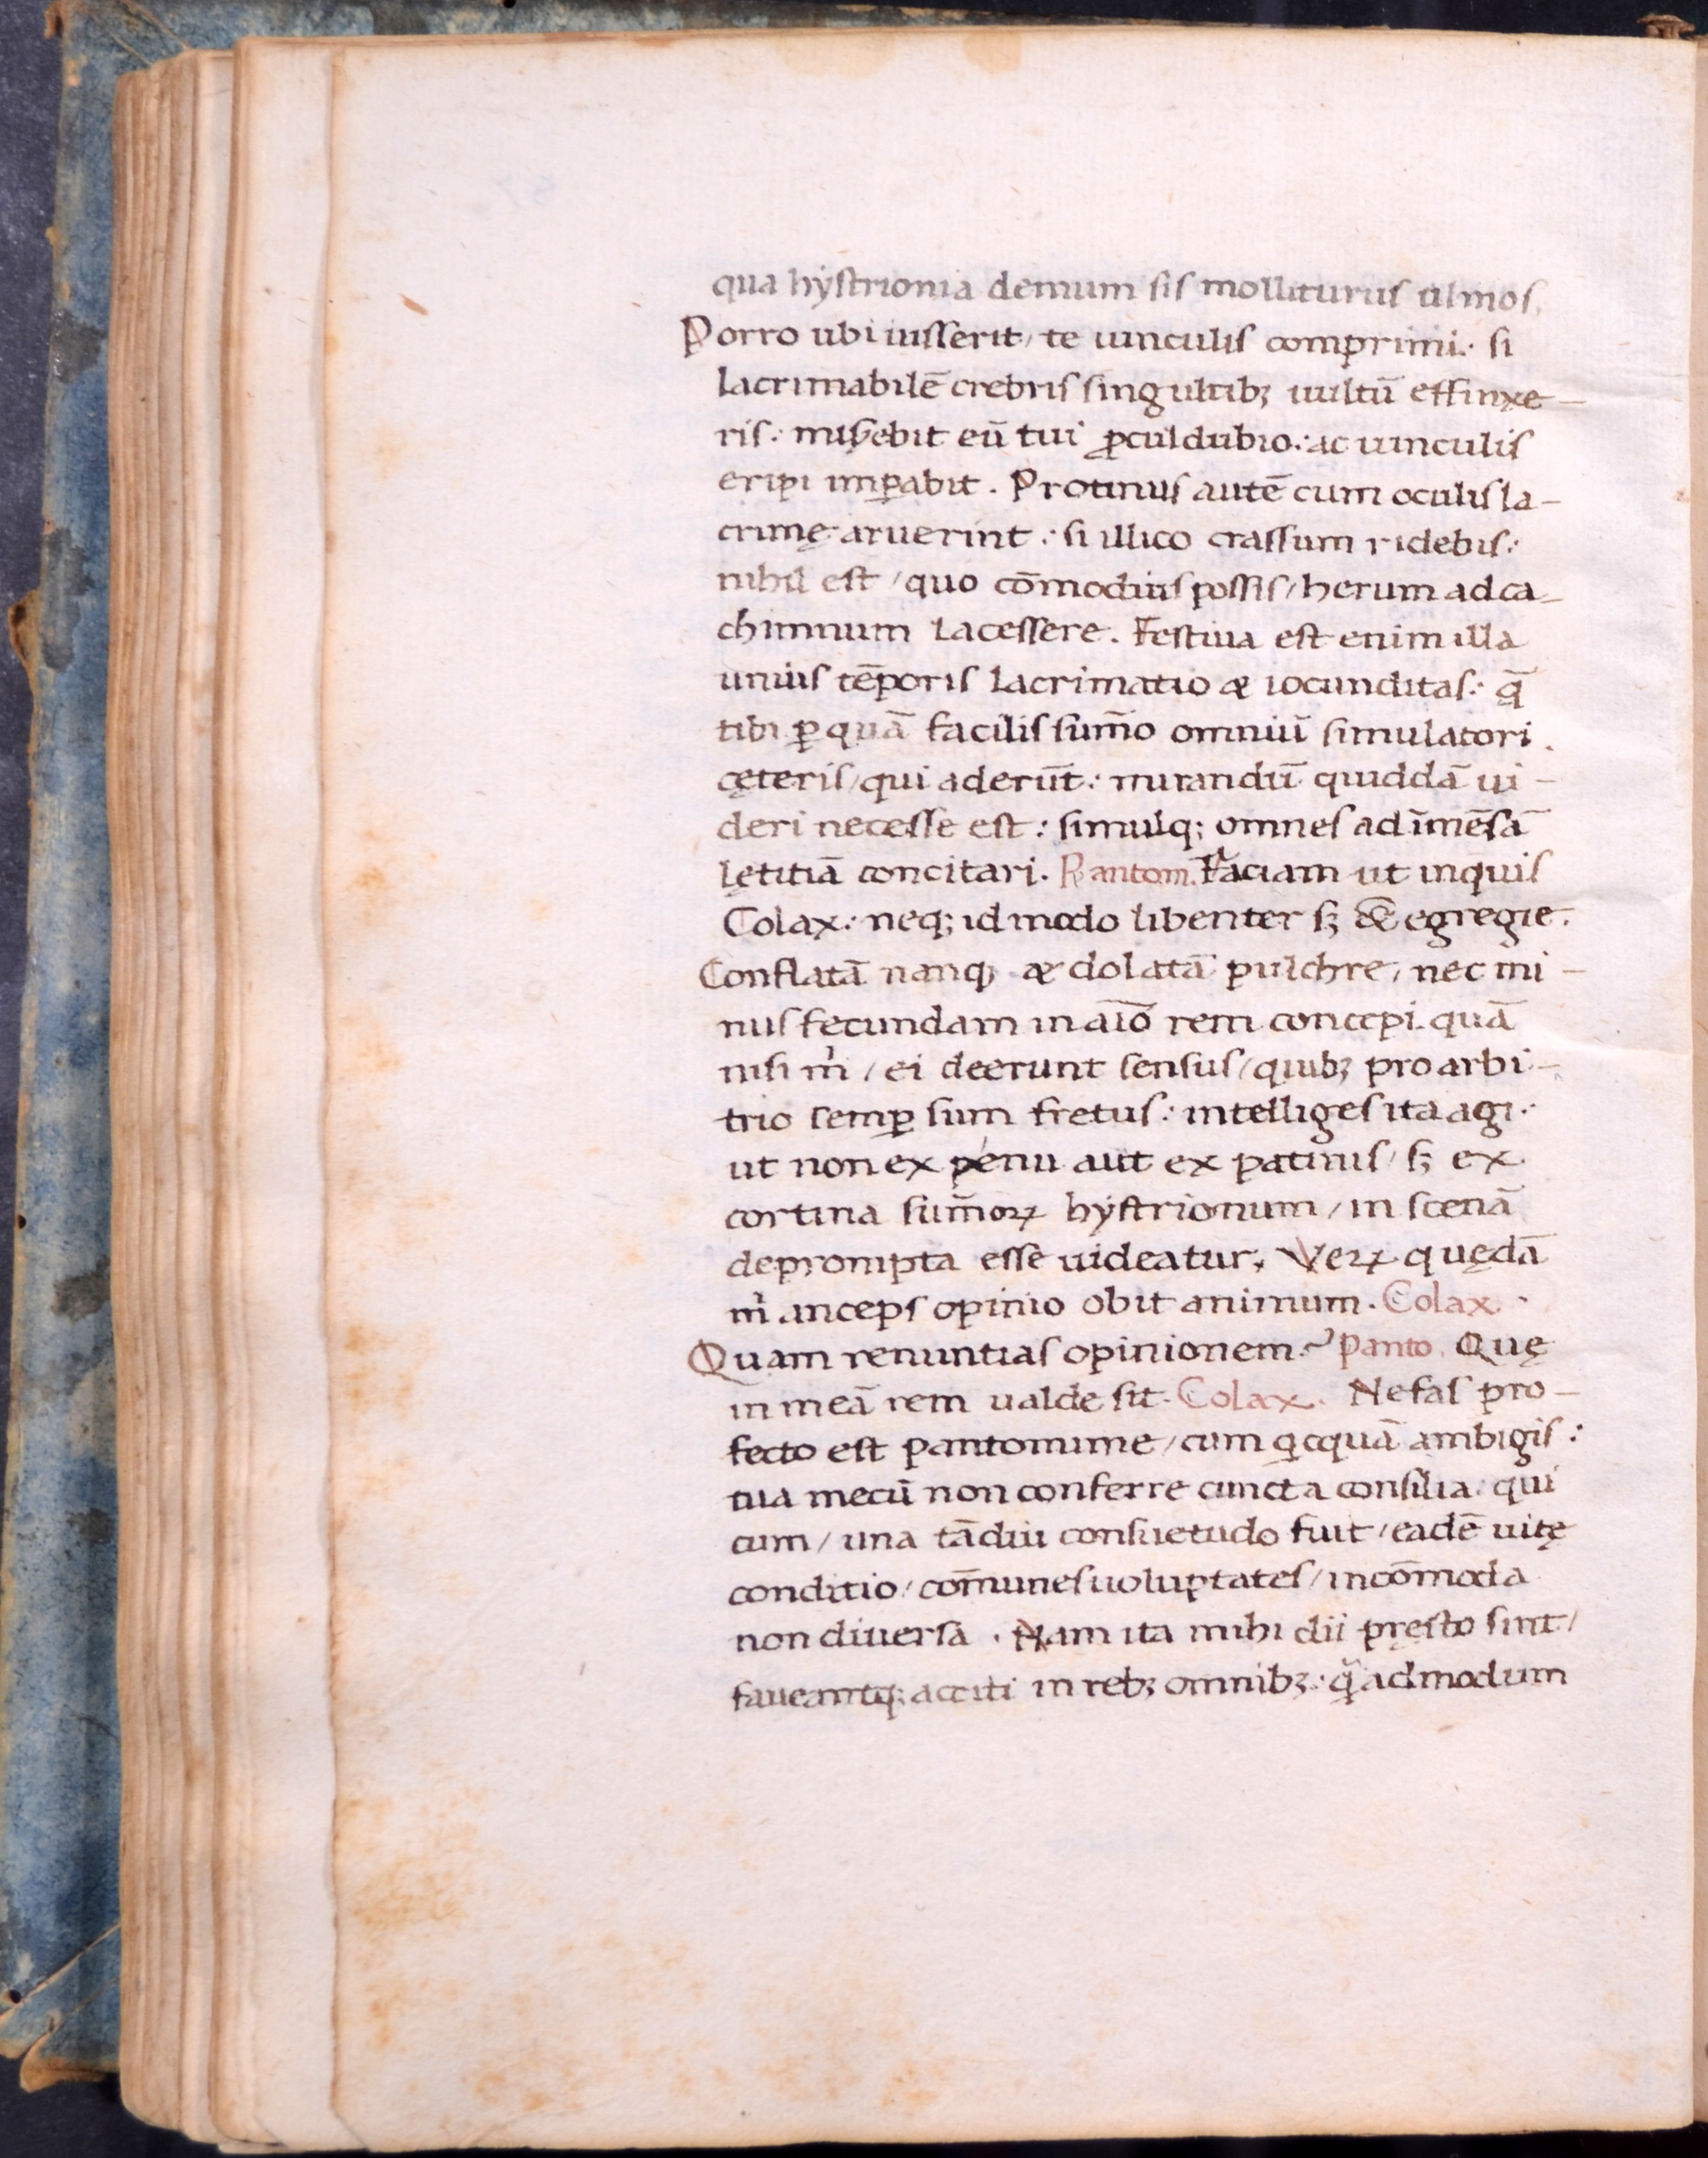 qua hÿstrionia demum sis molliturus ulmos.
Porro ubi iusserit / te uinculis comprimi: si
lacrimabilē crebris singultibꝫ uultū effinxe-
ris: misꝑebit eū tui ꝓculdubio: ac uinculis
eripi imꝑabit. Protinus autē cum oculis la-
crimę aruerint: si illico crassum ridebis:
nihil est / quo cōmodius possis / herum ad ca-
chinnum lacessere. Festiua est enim illa
unius tēporis lacrimatio & iocunditas: q̄
tibi ꝑquā facilis sum̄o omniū simulatori.
cęteris / qui aderūt: mirandū quiddā ui-
deri necesse est: simulq; omnes ad īmēsā
lętitiā concitari. Pantom. Faciam ut inquis
Colax: neq; id modo libenter sꝫ & egregie.
Conflatā nanq; & dolatā pulchre, nec mi-
nus fecundam in aīo rem concepi. quā
nisi m̀ / ei deerunt sensus / quibꝫ pro arbi-
trio semꝑ sum fretus: intelliges ita agi:
ut non ex penu aut ex patinis / sꝫ ex
cortina sum̄oꝝ hÿstrionum / in scenā
deprompta esse uideatur. Veꝝ quędā
m̀ anceps opinio obit animum. Colax.
Quam renuntias opinionem? Panto. Quę
in meā rem ualde sit. Colax. Nefas pro-
fecto est pantomime / cum qicquā ambigis:
tua mecū non conferre cuncta consilia: qui
cum / una tādiu consuetudo fuit / eadē uitę
conditio / cōmunes uoluptates / incōmoda
non diuersa. Nam ita mihi dii pręsto sint /
faueantq; acciti in rebꝫ omnibꝫ: q̄admodum